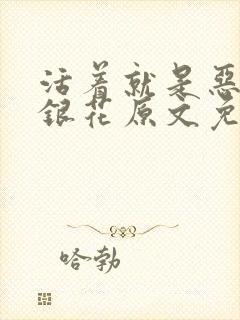 活着就是恶
银花原文免
哈勃